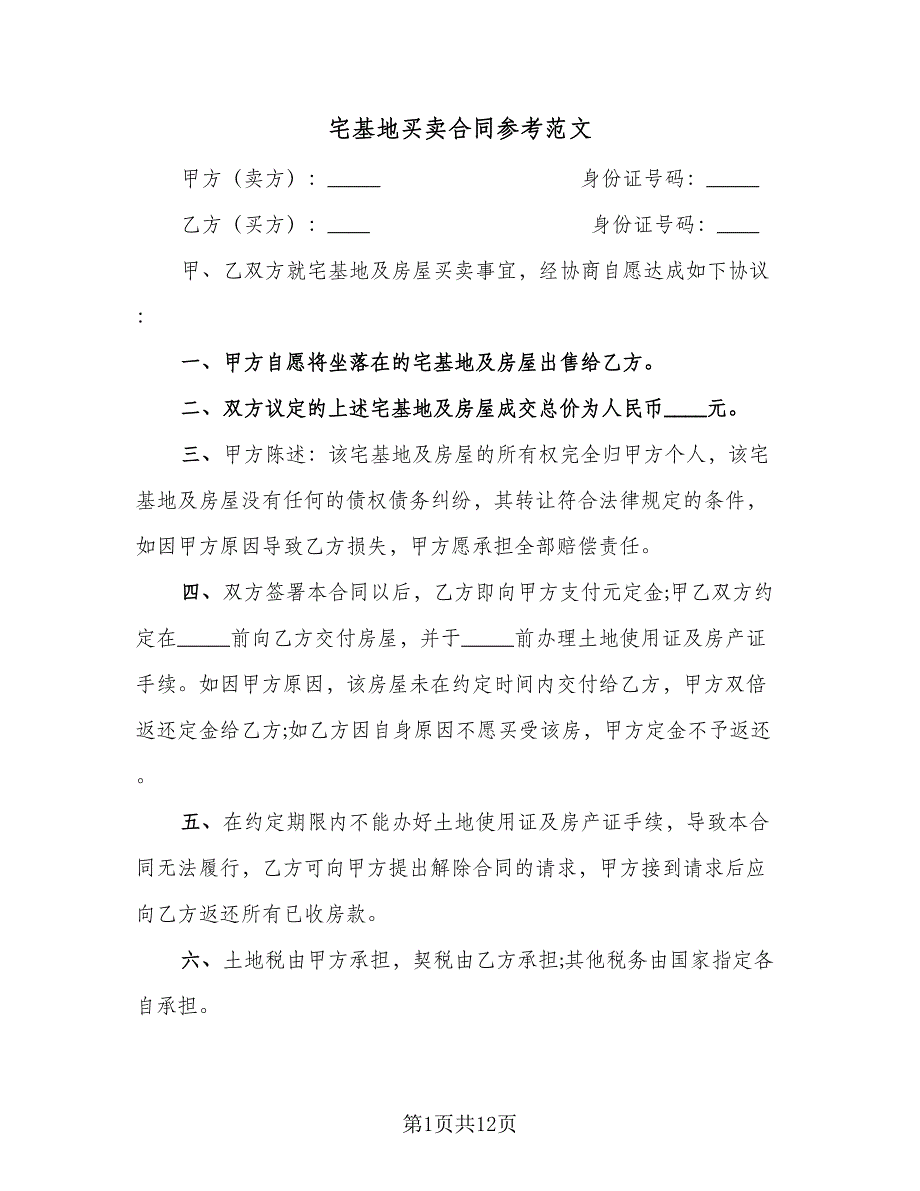 宅基地买卖合同参考范文
甲方（卖方）：_____ 身份证号码：_____
乙方（买方）：____ 身份证号码：____
甲、乙双方就宅基地及房屋买卖事宜，经协商自愿达成如下协议
：
一、甲方自愿将坐落在的宅基地及房屋出售给乙方。
二、双方议定的上述宅基地及房屋成交总价为人民币____元。
三、甲方陈述：该宅基地及房屋的所有权完全归甲方个人，该宅
基地及房屋没有任何的债权债务纠纷，其转让符合法律规定的条件，
如因甲方原因导致乙方损失，甲方愿承担全部赔偿责任。
四、双方签署本合同以后，乙方即向甲方支付元定金;甲乙双方约
定在_____前向乙方交付房屋，并于_____前办理土地使用证及房产证
手续。如因甲方原因，该房屋未在约定时间内交付给乙方，甲方双倍
返还定金给乙方;如乙方因自身原因不愿买受该房，甲方定金不予返还
。
五、在约定期限内不能办好土地使用证及房产证手续，导致本合
同无法履行，乙方可向甲方提出解除合同的请求，甲方接到请求后应
向乙方返还所有已收房款。
六、土地税由甲方承担，契税由乙方承担;其他税务由国家指定各
自承担。
第1页共12页